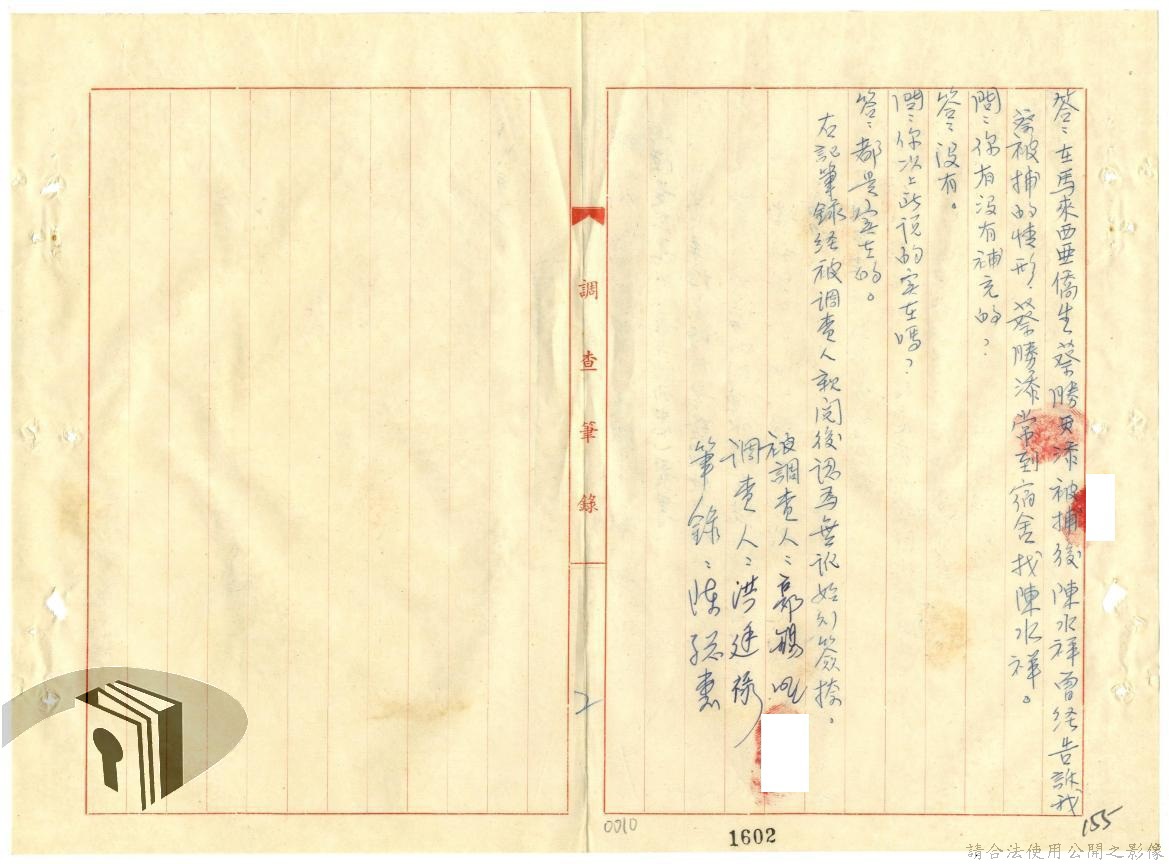 答：在馬來西亜僑生蔡勝添被捕後陳水祥曾経告訴我
蔡被捕的情形，蔡勝添常到宿舍找陳水祥。
問：你有没有補充的？
答：没有。
問：你以上所说的実在嗎？
答：都是実在的。
右記筆録経被調查人親閱後認為無訛始行簽捺。
被調查人：郭
調查人：洪廷祿
筆錄：陳聡惠
調查筆錄
2
0010
1602
155
請合法使用公開之影像